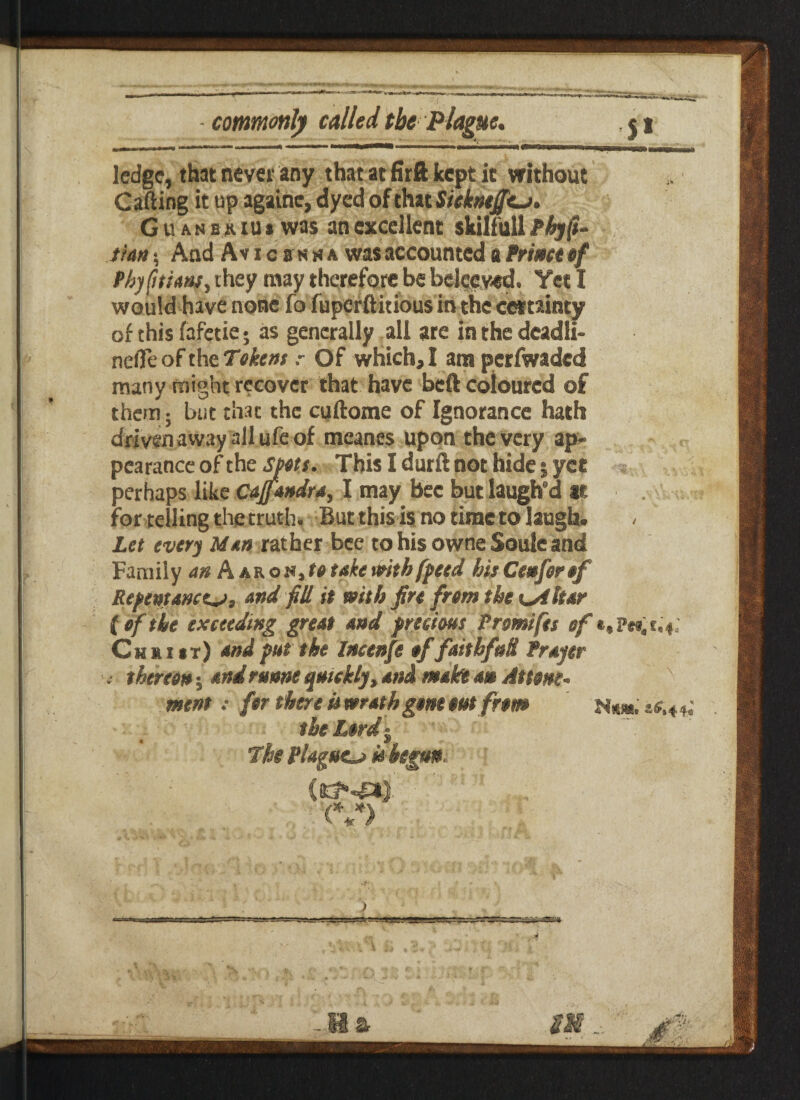 commonly called the Plague. 51
ledge, that never any that at firſt kept it without
Caſting it up againe, dyed of that Sickneſſe.
GUANERIUS was an excellent skilfull Phyſi-
tian; And AVICENNA was accounted a Prince of
Phyſitians, they may therefore be beleeved. Yet I
would have none ſo ſuperſtitious in the certainty
of this ſafetie; as generally all are in the deadli-
neſſe of the Tokens: Of which, I am perſwaded
many might recover that have beſt coloured of
them; but that the cuſtome of Ignorance hath
driven away all uſe of meanes upon the very ap-
pearance of the Spots. This I durſt not hide; yet
perhaps like Caſſandra, I may bee but laugh'd at
for telling the truth. But this is no time to laugh.
Let every Man rather bee to his owne Soule and
Family an AARON, to take with ſpeed his Cenſor of
Repentance, and fill it with fire from the Altar
(of the exceeding great and precious Promiſes of 2. Pet. 1.4.
CHRIST) and put the Incenſe of faithfull Prayer
thereon; and runne quickly, and make an Attone-
ment: for there is wrath gone out from Num. 16.44.
the Lord;
The Plague is begun.
H 2 IN